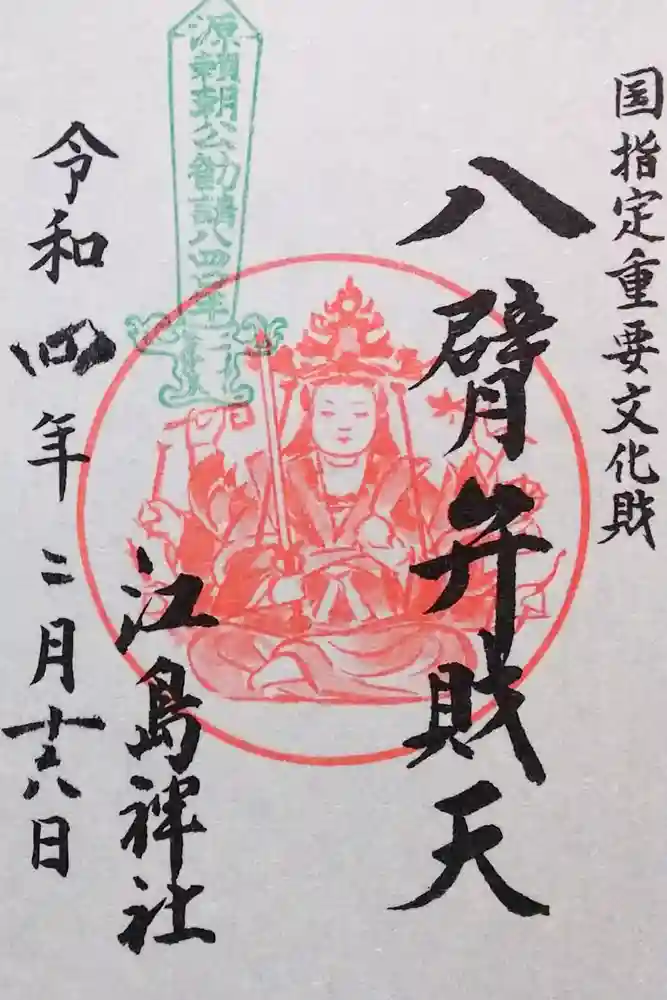 国指定重要文化財
八臂弁財天
源頼朝公勧請八四〇年
江島神社
令和四年二月十日